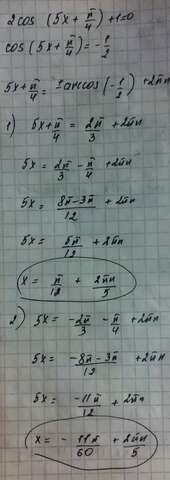 2cos (5x + π/4) + 1 = 0
cos (5x + π/4) = - 1/2
5x + π/4 = ± arccos (- 1/2) + 2πn
1) 5x + π/4 = 2π/3 + 2πn
5x = 2π/3 - π/4 + 2πn
5x = 8π - 3π/12 + 2πn
5x = 5π/12 + 2πn
x = π/12 + 2πn/5
2) 5x = - 2π/3 - π/4 + 2πn
5x = - 8π - 3π/12 + 2πn
5x = - 11π/12 + 2πn
x = - 11π/60 + 2πn/5